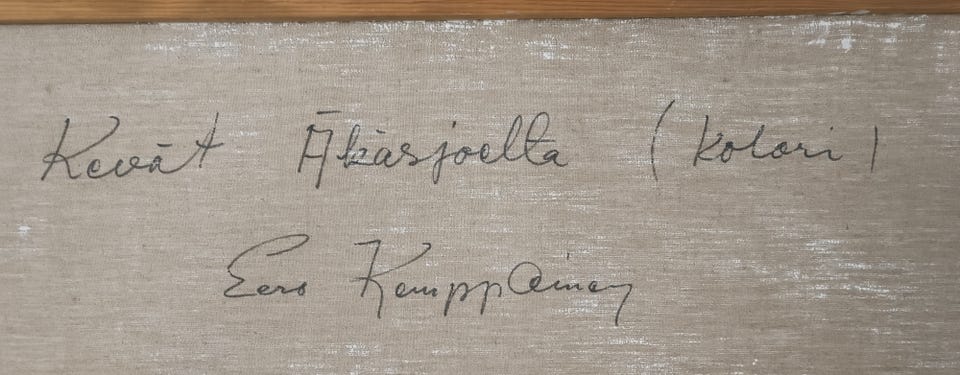 Kevät Äkäsjoelta (Kolari)
Eero Kamppainen